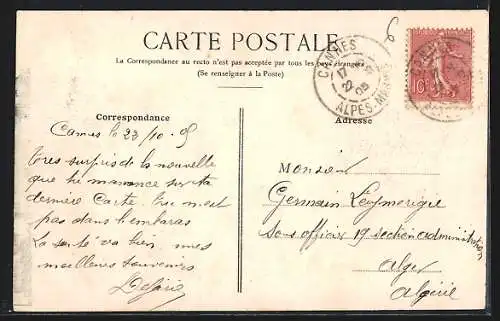 CARTE POSTALE
La Correspondance au recto n'est pas acceptée par tous les pays étrangers
(Se renseigner à la Poste)
CANNES
ALPES-MARMES
10
Correspondance
Adresse
Cannes le 23/10-05
très surpris de la nouvelle
que tu sur ta
dernière Carte. tu n'est
pas dans l'embaras
La santé va bien, mes
meilleurs souvenirs
Monsieur
Germain Leymerigie
Sous officier 19 section administration
Alger
Algérie